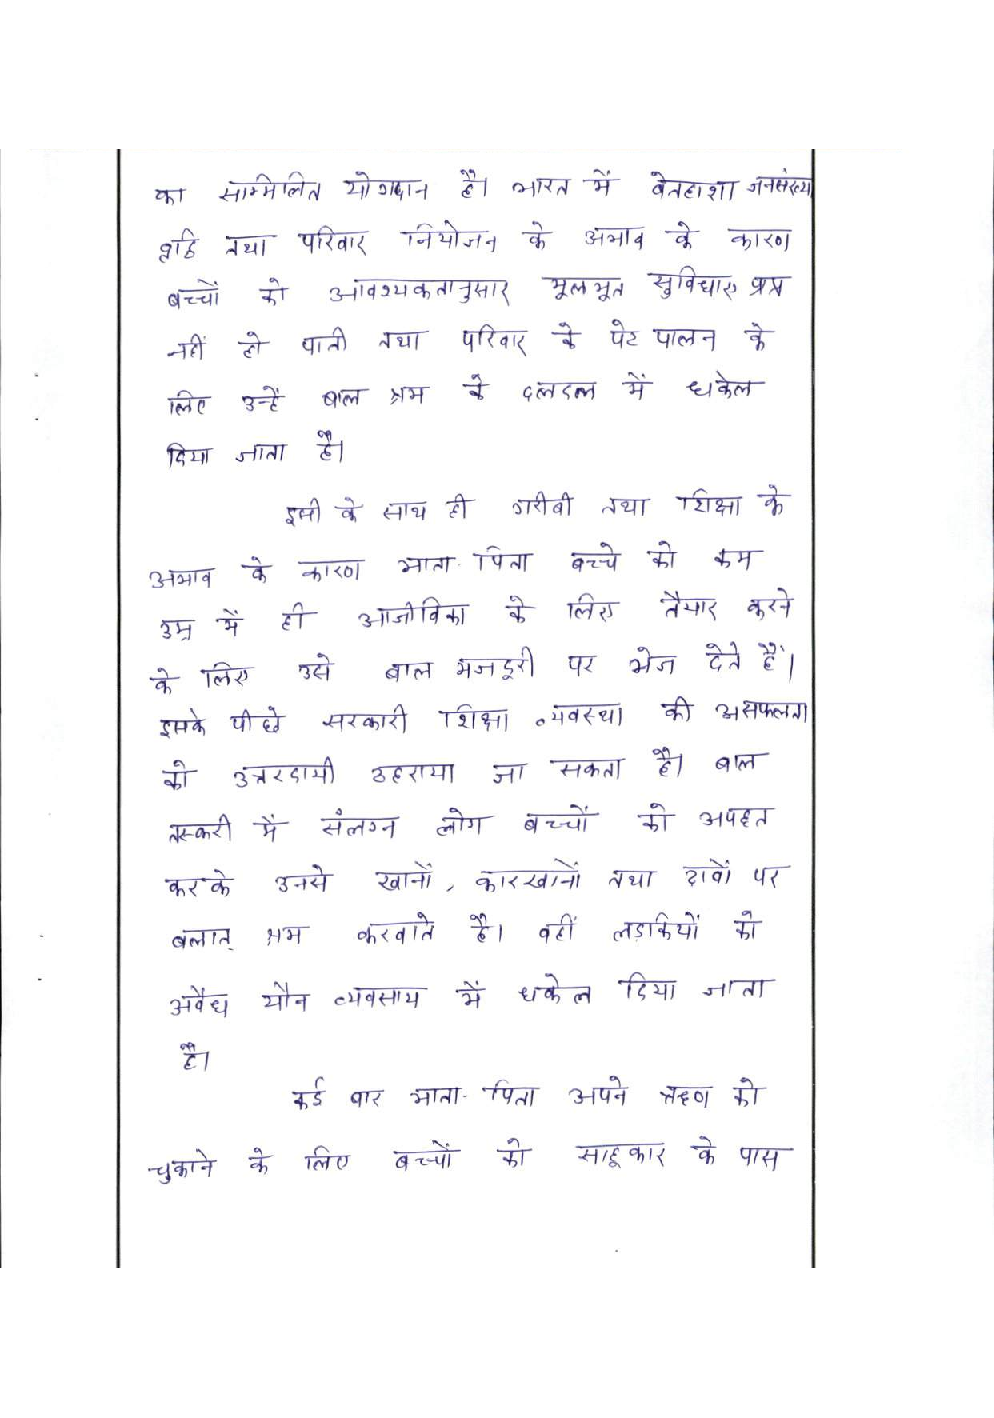 का सम्मिलित योगदान है। भारत में बेतहाशा जनसंख्या
वृद्धि तथा परिवार नियोजन के अभाव के कारण
बच्चों को आवश्यकतानुसार मूलभूत सुविधाएं प्राप्त
नहीं हो पाती तथा परिवार के पेट पालन के
लिए उन्हें बाल श्रम के दलदल में धकेल
दिया जाता है।
इसी के साथ ही गरीबी तथा शिक्षा के
अभाव के कारण माता-पिता बच्चे को कम
उम्र में ही आजीविका के लिए तैयार करने
के लिए उसे बाल मजदूरी पर भेज देते हैं।
इसके पीछे सरकारी शिक्षा व्यवस्था की असफलता
को उत्तरदायी ठहराया जा सकता है। बाल
तस्करी में संलग्न लोग बच्चों को अपहृत
करके उनसे खानों, कारखानों तथा ढाबों पर
बलात् श्रम करवाते है। वहीं लड़कियों को
अवैध यौन व्यवसाय में धकेल दिया जाता
है।
कई बार माता-पिता अपने ऋण को
चुकाने के लिए बच्चों को साहूकार के पास